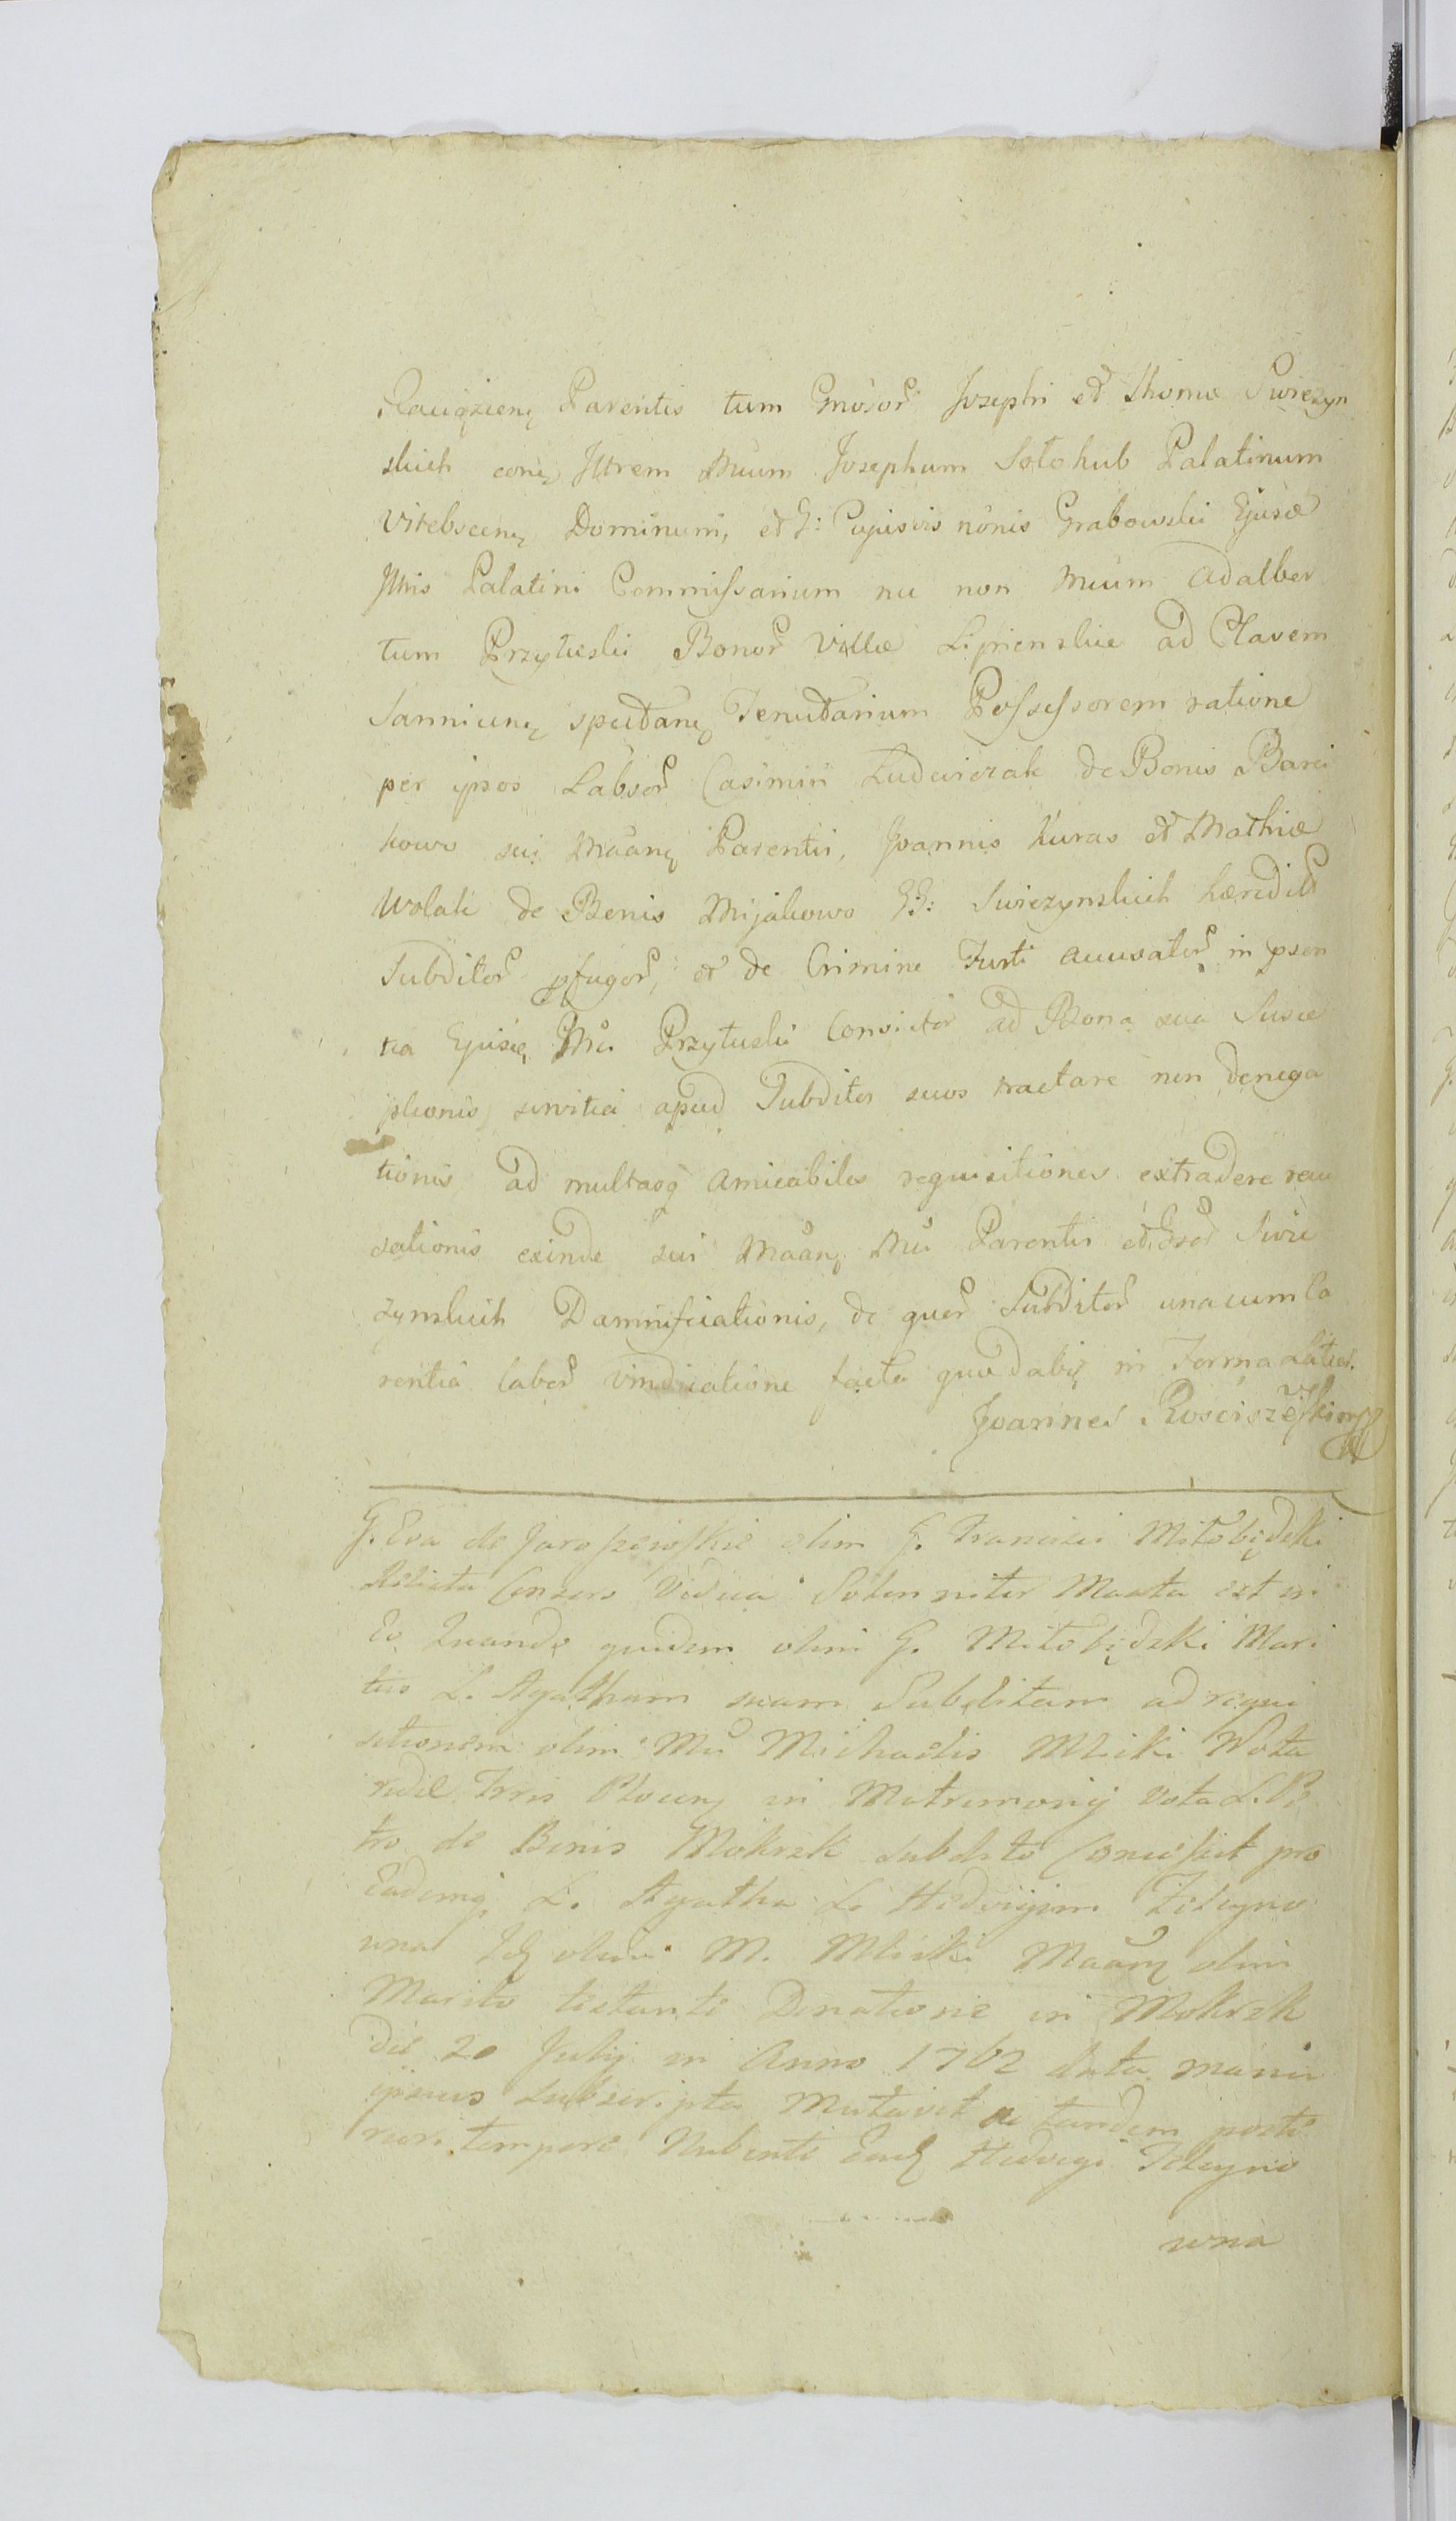 Raciązien Parentis tum Gnosor Josephi et Thomæ Swiezyn
skich con Illrem Mcum Josephum Sołohub Palatinum
Vitebscen Dominum, et G: Cujusvis nonis Grabowski Ejusd
Illris Palatini Commissarium nec non Mcum Adalber
tum Przyłuski Bonor Villæ Lipienskie ad Clavem
Sannicen spectan Tenutarium Possessorem ratione
per ipsos Labsor Casimiri Ludwiczak de Bonis Barci
kowo sui Maan Parentis, Joannis Kuras et Mathiæ
Wolak de Bonis Mijakowo GG: Swiezynskich hæredit
Subditor pfugor, et de Crimine Furti accusator in psen
tia Ejusd Mci Przyłuski Convictor ad Bona sua Susce
ptionis, servitia apud Subditos suos tractare non denega
tionis, ad multasq amicabiles requisitiones extradere recu
sationis exinde sui Maan Mci Parentis et Swie
zynskich Damnificationis, de quor Subditor unacum Ca
rentia labor vindicatione facta quæ dabit in Forma Latior.
Joannes Rościszewski mp
G. Eva de Jaroszewskie olim G. Francisci Miłobędzki
Relicta Consors Vidua Solenniter Maata est in
Eo Quando quidem olim G. Miłobędzki Mari
tus L. Agatham suam Subditam ad requi
sitionem olim Mci Michaelis Mlicki Nota
rij Trris Plocen in Matrimonij vota L. Pe
tro de Bonis Mokrzk subdito Concessit pro
Eademq L. Agatha L. Hedvigim Żelazno
wna Idem olim M. Mlicki Maan olim
Marito testante Donatione in Mokrzk
die 20 Julij in Anno 1762 data manu
ipsius subscripta Mutavit ac tandem poste
riori tempore Nubenti ead Hedvigi Żelazno
wna